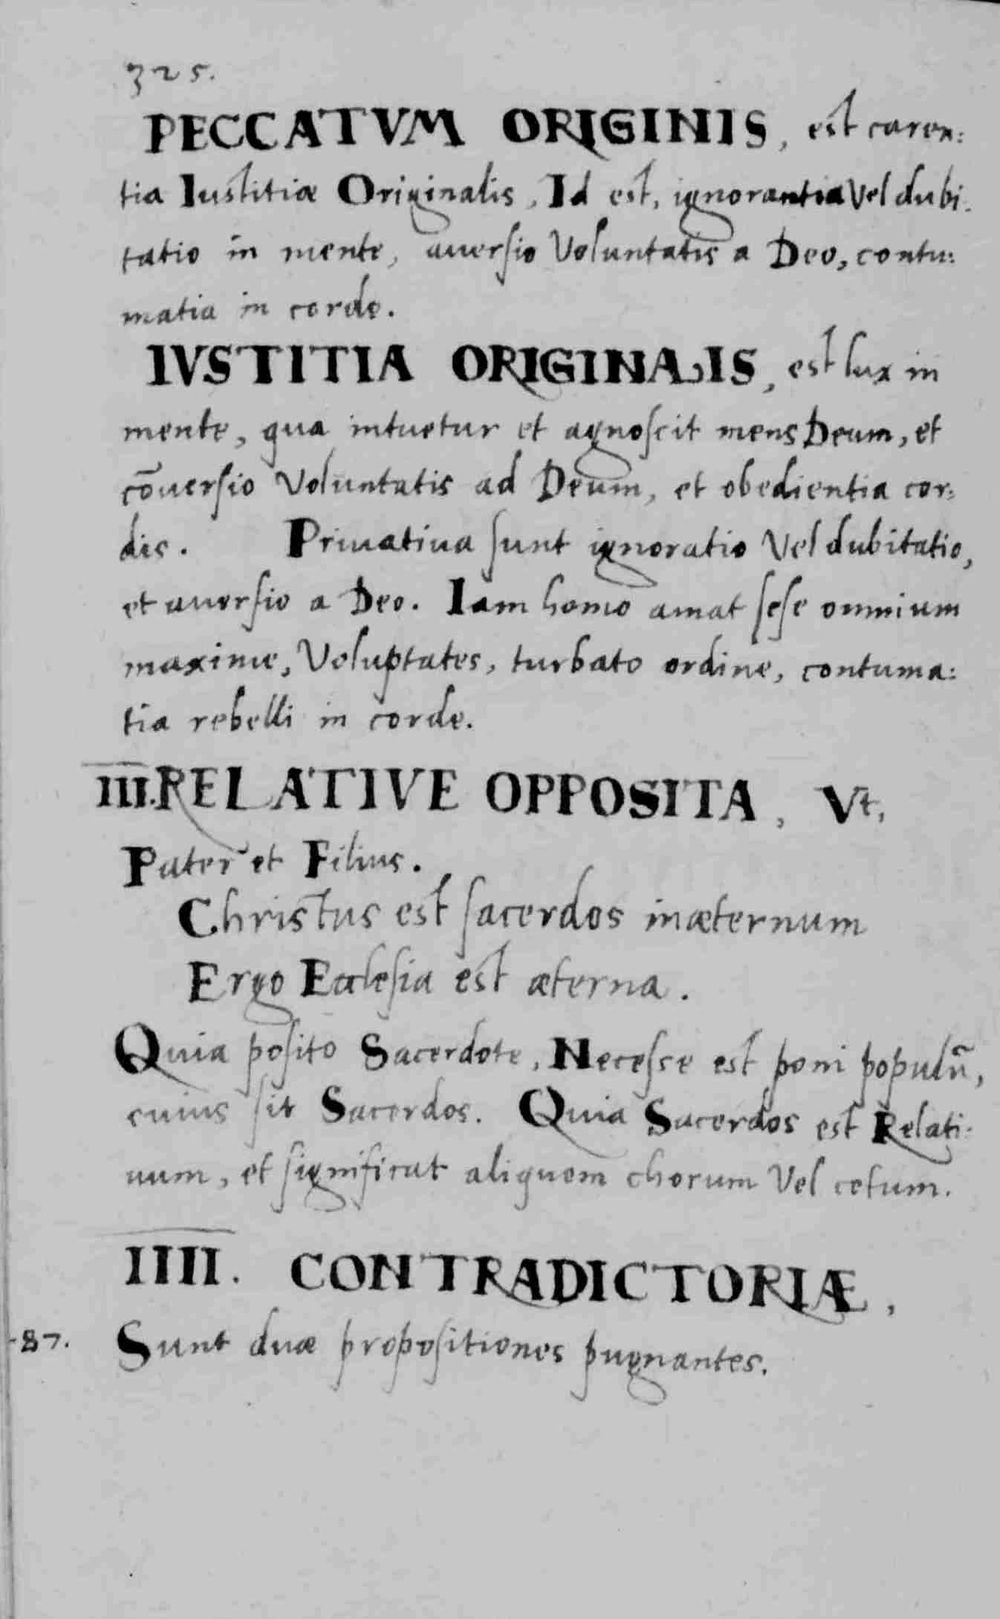 325.
PECCATVM ORIGINIS, est caren:
tia Iustitiæ Originalis, Id est, ignorantia Vel dubi:
tatio in mente, auersio Voluntatis a Deo, contu:
matia in corde.
IVSTITIA ORIGINALIS, est lux in
mente, qua intuetur et agnoscit mens Deum, et
cōuersio Voluntatis ad Deum, et obedientia cor:
dis. Priuatiua sunt ignoratio Vel dubitatio,
et auersio a Deo. Iam homo amat sese omnium
maxime, Voluptates, turbato ordine, contuma:
tia rebelli in corde.
III. RELATIVE OPPOSITA, Vt,
Pater et Filius.
Christus est sacerdos in æternum
Ergo Ecclesia est æterna.
Quia posito Sacerdote, Necesse est poni populū,
cuius sit Sacerdos. Quia Sacerdos est Relati:
uum, et significat aliquem chorum Vel cetum.
IIII. CONTRADICTORIÆ,
-87. Sunt duæ propositiones pugnantes.